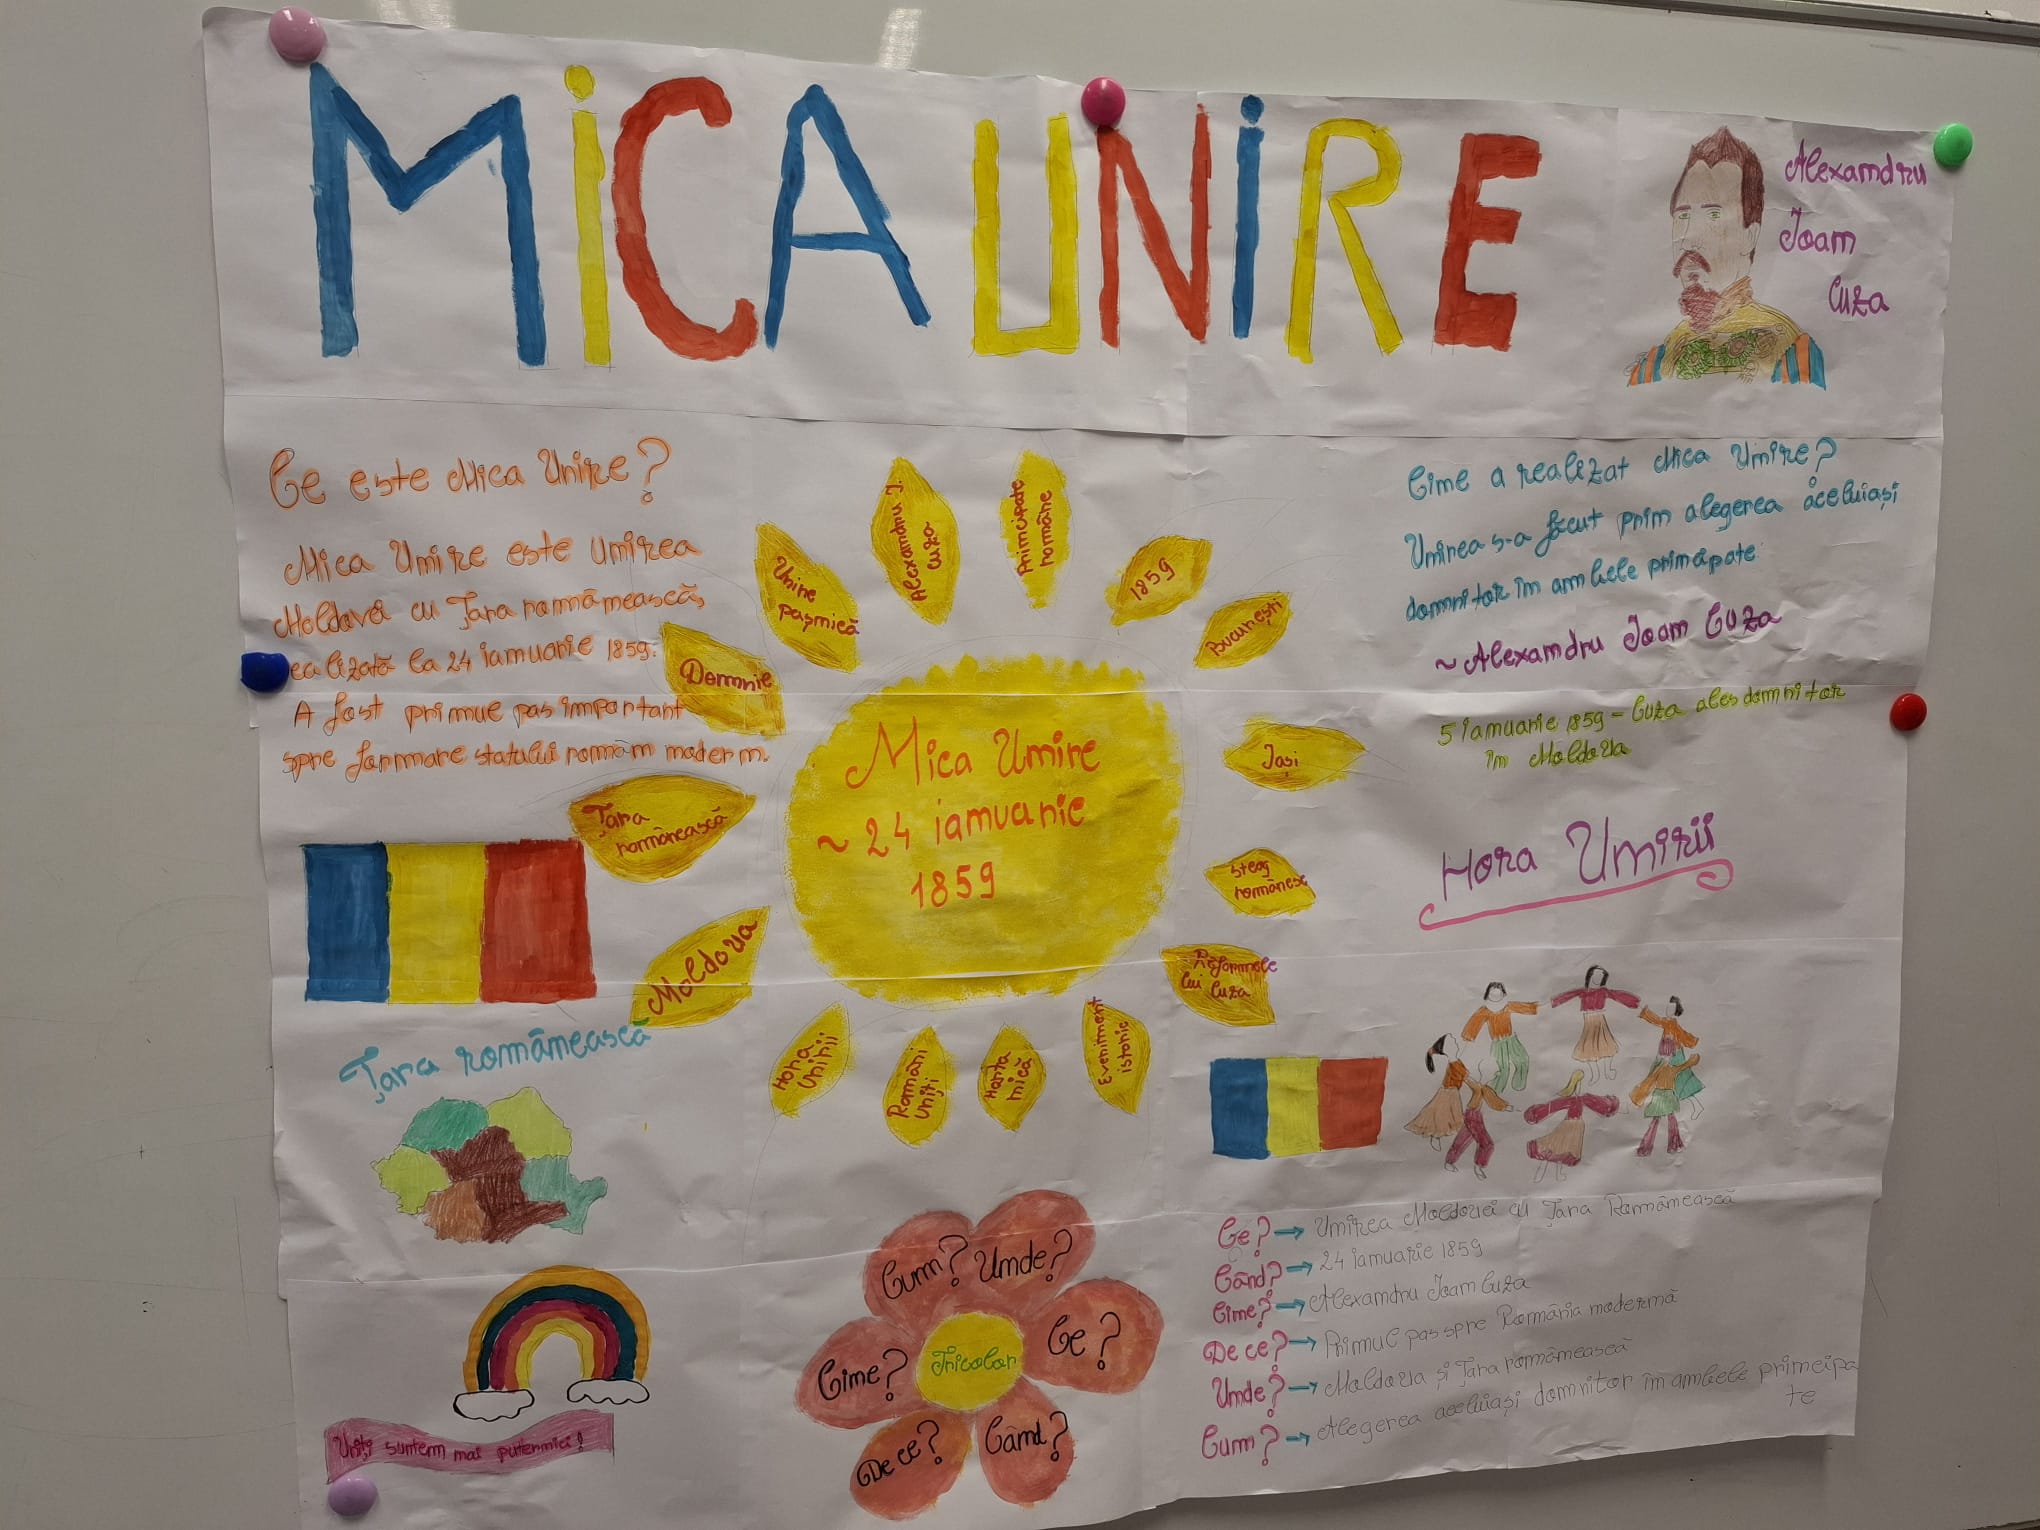 MiCA UNiRE
Alexandru
Ioan
Cuza
Ce este Mica Unire?
Mica Unire este unirea
Moldovei cu Țara românească,
ealizată la 24 ianuarie 1859.
A fost primul pas important
spre formare statului român modern.
Cine a realizat Mica Unire?
Unirea s-a făcut prin alegerea aceluiași
domnitor în ambele principate
~ Alexandru Ioan Cuza
5 ianuarie 1859 - Cuza ales domnitor
în Moldova
Hora Unirii
Mica Unire
~ 24 ianuarie
1859
Moldova
Țara
românească
Domnie
Unire
pașnică
Alexandru I.
Cuza
Principate
române
1859
București
Iași
steag
românesc
Reformele
lui Cuza
Eveniment
istoric
Harta
mică
Români
uniți
Hora
Unirii
Țara românească
Uniți suntem mai puternici!
Cum?
Unde?
Cine?
Tricolor
Ce?
De ce?
Când?
Ce? → Unirea Moldovei cu Țara Românească
Când? → 24 ianuarie 1859
Cine? → Alexandru Ioan Cuza
De ce? → Primul pas spre România modernă
Unde? → Moldova și Țara românească
Cum? → Alegerea aceluiași domnitor în ambele principa
te